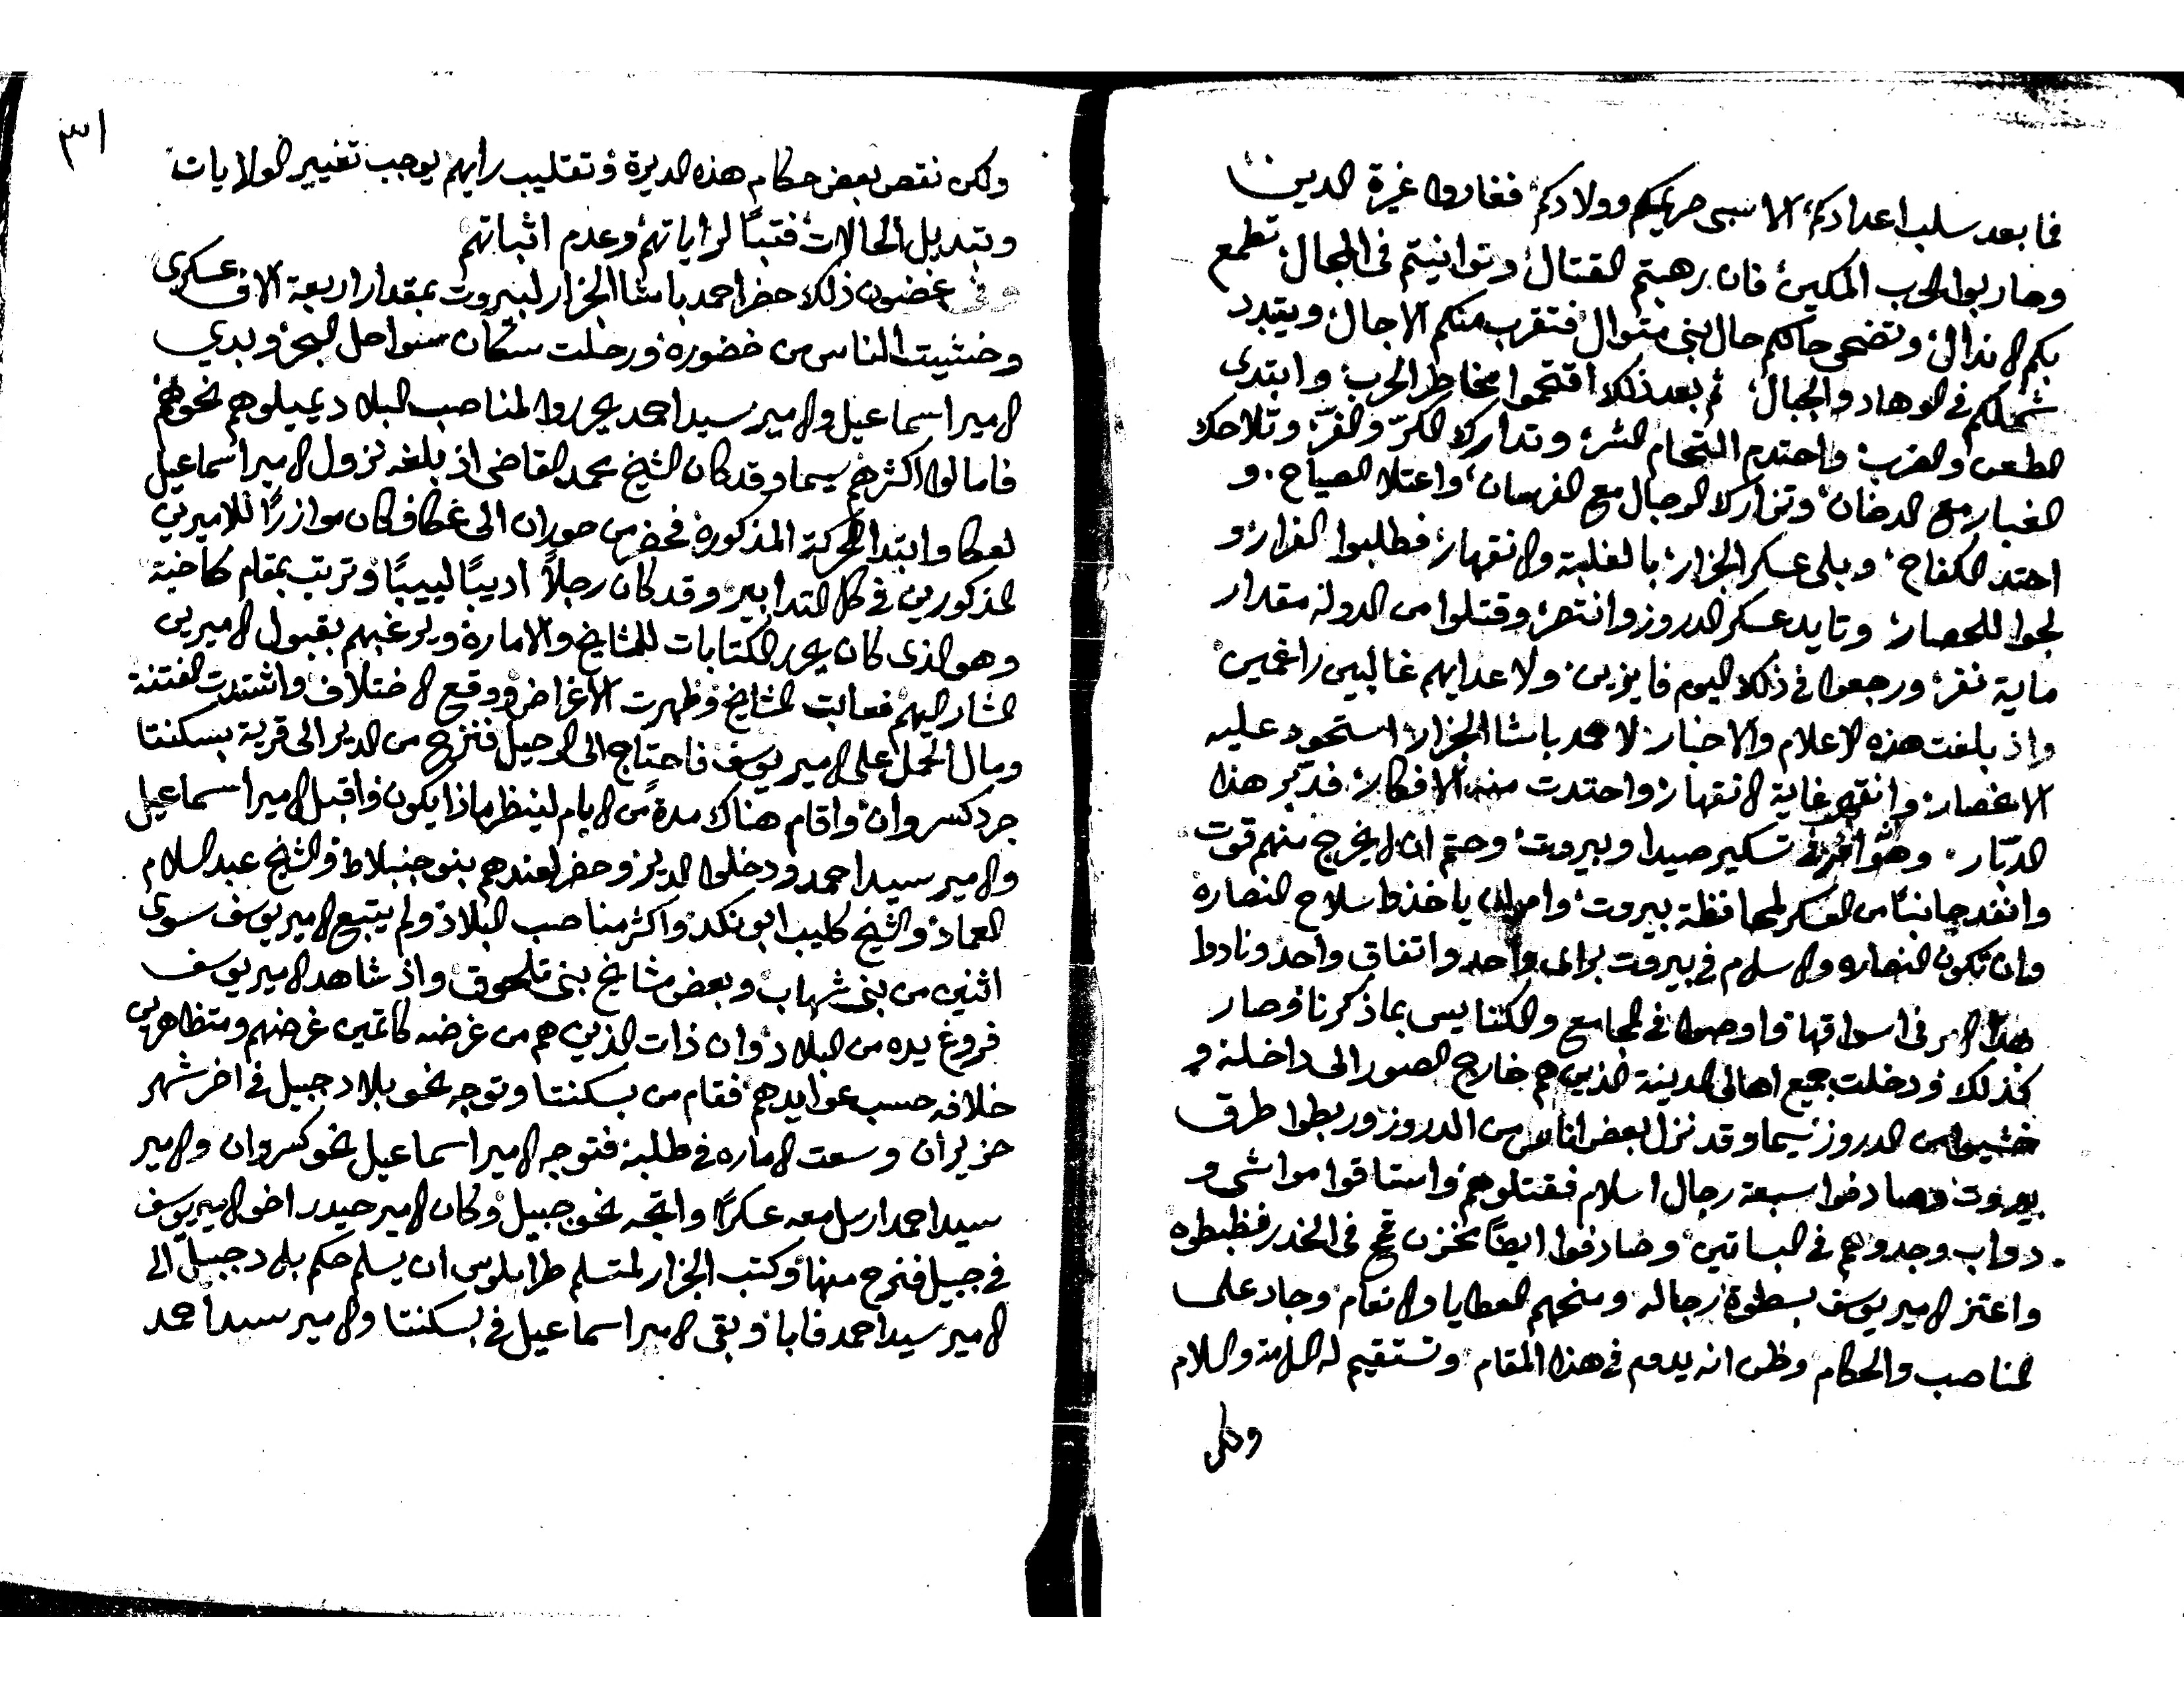 فما بعد سلب اعدادكم، الا سبى حريمكم وولادكم، فغاروا غيرة الدين،
وحاربوا الحرب المكين، فان رهبتم القتال، وتوانيتم فى المجال، تطمع
بكم الاندال، وتضحى حالكم حال بنى متوال، فتقرب منكم الاجال، ويتبدد
شملكم فى الوهاد والجبال، ثم بعد ذلك اقتحموا مخاطر الحرب، وابتدى
الطعن والضرب، واحتدم التحام الشر، وتدارك الكرّ والفرّ، وتلاحك
الغبار مع الدخان، وتزارك الرجال مع الفرسان، واعتلا الصياح، و
احتد الكفاح، وبلى عسكر الجزار، بالغلبة والانقهار، فطلبوا الفرار، و
لجوا للحصار، وتايد عسكر الدروز وانتصر، وقتلوا من الدولة مقدار
ماية نفر، ورجعوا فى ذلك اليوم فايزين، ولاعدايهم غالبين راغمين،
واذ بلغت هذه الاعلام والاخبار، لاحمد باشا الجزار، استحود عليه
الاغصار، وانقهر غاية الانقهار، واحتدت منه الافكار، فدبّر هذا
الدبّار، وهو امر فى تسكير صيدا وبيروت، وحتم ان لا يخرج منهم قوت
وانفد جانبًا من العسكر لمحافظة بيروت، وامر ان ياخذوا سلاح النصاره
وان تكون النصاره والاسلام فى بيروت براى واحد واتفاق واحد ونادوا
هذا الامر فى اسواقها، واوصوا فى الجامع والكنايس بما ذكرنا، وصار
كذلك، ودخلت جميع اهالى المدينة الذين هم خارج الصور الى داخلة، و
خشيوا من الدروز، سيما وقد نزل بعض اناس من الدروز وربطوا طرق
بيروت وصادفوا سبعة رجال اسلام فقتلوهم، واستاقوا مواشى و
دواب وجدوهم فى البساتين، وصادفوا ايضًا مخزن قمح فى الخدر فظبطوه
واعتز الامير يوسف بسطوة رجاله، ومنحهم العطايا والانعام، وجاد على
المناصب والحكام وظن انه يدوم فى هذا المقام وتستقيم له السلامة والسلام
ولكن
٣١
ولكن نقص بعض حكام هذه الديرة، وتقليب رايهم يوجب تغيير الولايات،
وتبديل الحالات، فتبًا لراياتهم، وعدم اثباتهم
وفى غضون ذلك حضر احمد باشا الجزار لبيروت بمقدار اربعة الاف عسكرى
وخشيت الناس من خضوره، ورحلت سكّان سواحل البحر، وبدي
الامير اسماعيل والامير سيد احمد يحرروا لمناصب البلاد يميلوهم نحوهم
فامالوا اكثرهم سيما وقد كان الشيخ محمد القاضى اذ بلغه نزول الامير اسماعيل
لعكا وابتدا الحركة المذكورة، فحضر من حوران الى عكا، فكان موازرًا للاميرين
المذكورين فى كل التدابير وقد كان رجلاً اديبًا لبيبًا، وترتب بمقام كاخية
وهو الذى كان يحرر الكتابات للمشايخ والامارة، ويرغبهم بقبول الاميرين
المشار اليهم فعابت المشايخ، وظهرت الاغراض، ووقع الاختلاف واشتدت الفتنة
ومال الحمل على الامير يوسف، فاحتاج الى الرحيل، فنزح من الدير الى قرية بسكنتا
جرد كسروان، واقام هناك مدةً من الايام لينظر ماذا يكون، واقبل الامير اسماعيل
والامير سيد احمد، ودخلوا الدير، وحضر لعندهم بنو جنبلاط، والشيخ عبد السلام
العماد، والشيخ كليب ابو نكد، واكثر مناصب البلاد، ولم يتبع الامير يوسف سوى
اثنين من بنى شهاب وبعض مشايخ بنى تلحوق، واذ شاهد الامير يوسف
فروغ يده من البلاد، وان ذات الذين هم من غرضه كاتمين غرضهم ومتظاهرين
خلافه حسب عوايدهم، فقام من بسكنتا وتوجه نحو بلاد جبيل فى اخر شهر
حزيران وسعت الاماره فى طلبه، فتوجه الامير اسماعيل نحو كسروان والامير
سيد احمد ارسل معه عسكرًا، واتجه نحو جبيل، وكان الامير حيدر اخو الامير يوسف
فى جبيل فنزح منها، وكتب الجزار لمتسلم طرابلوس ان يسلم حكم بلاد جبيل الى
الامير سيد احمد فابا، وبقى الامير اسماعيل فى بسكنتا والامير سيد احمد